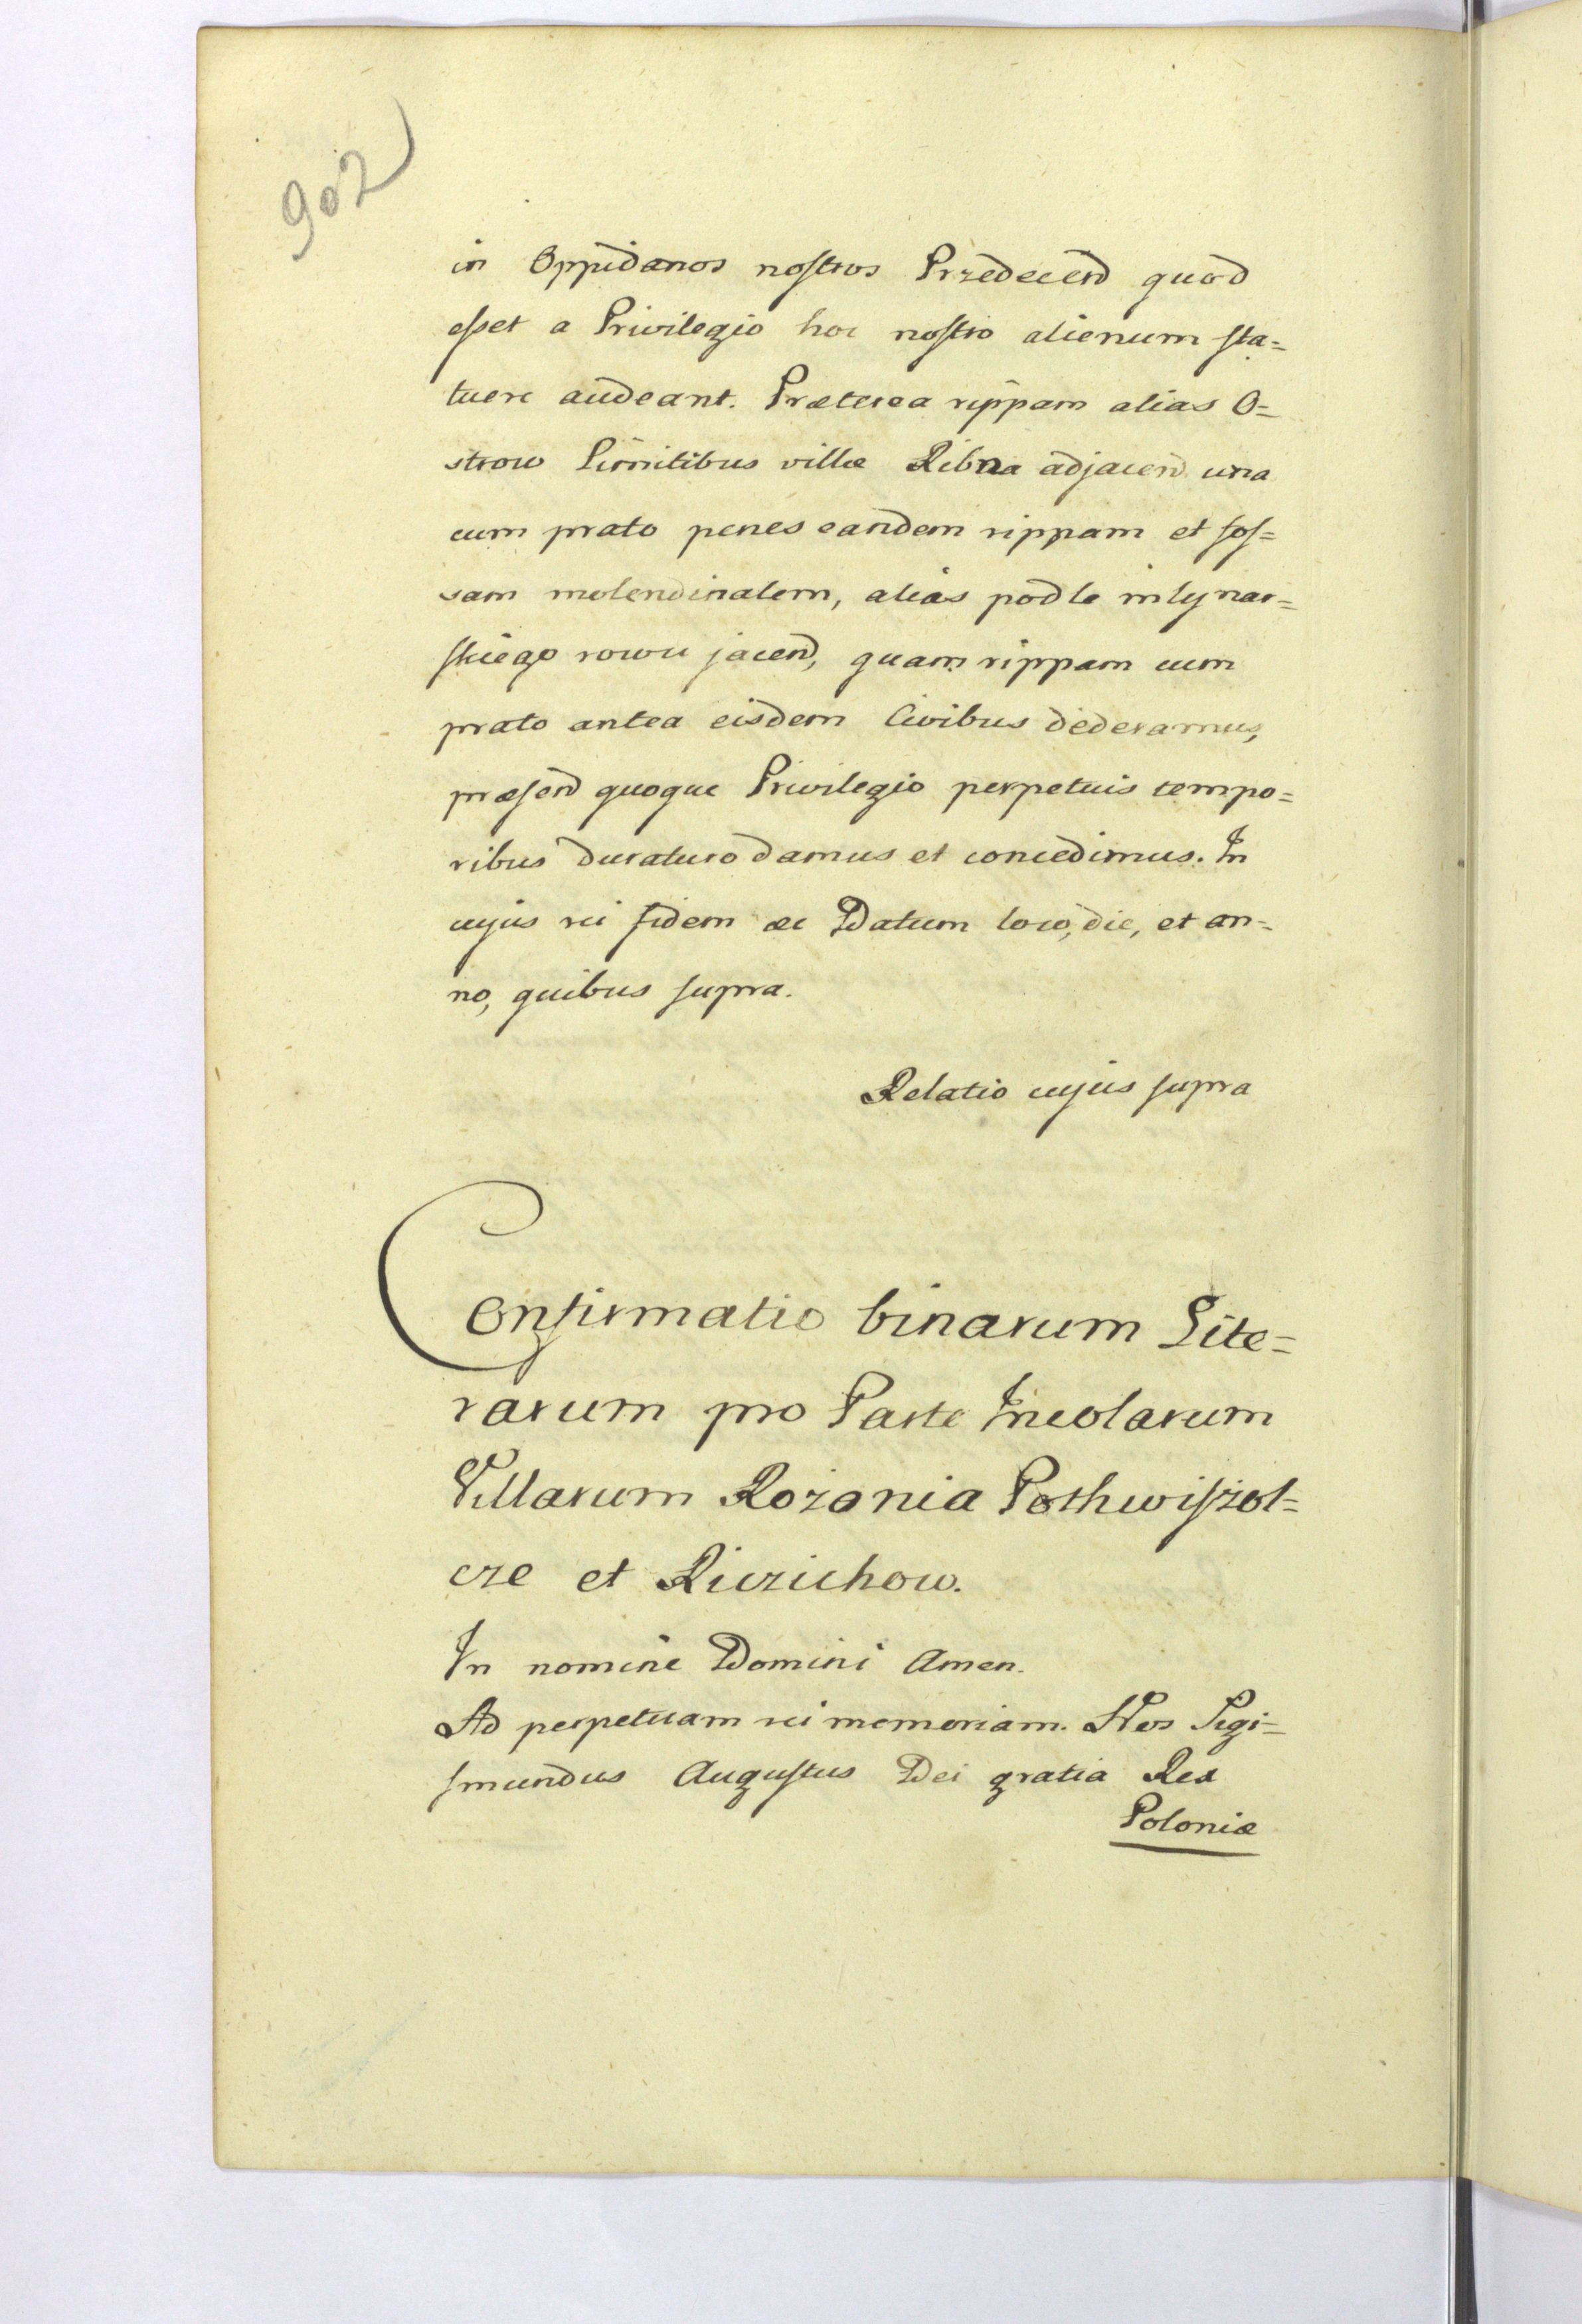 902
in Oppidanos nostros Przedecen̄d quod
esset a Privilegio hoc nostro alienum sta=
tuere audeant. Præterea rippam alias O=
strow Limitibus villæ Ribna adjacen̄d una
cum prato penes eandem rippam et fos=
sam molendinalem, alias podle mlynar=
skiego rowu jacen̄d, quam rippam cum
prato antea eisdem Civibus dederamus,
præsen̄d quoque Privilegio perpetuis tempo=
ribus duraturo damus et concedimus. In
cujus rei fidem &c Datum loco, die, et an=
no, quibus supra.
Relatio cujus supra
Confirmatio binarum Lite=
rarum pro Parte Incolarum
Villarum Rozonia Pothwiszol=
cze et Riczichow.
In nomine Domini Amen.
Ad perpetuam rei memoriam. Nos Sigi=
smundus Augustus Dei gratia Rex
Poloniæ